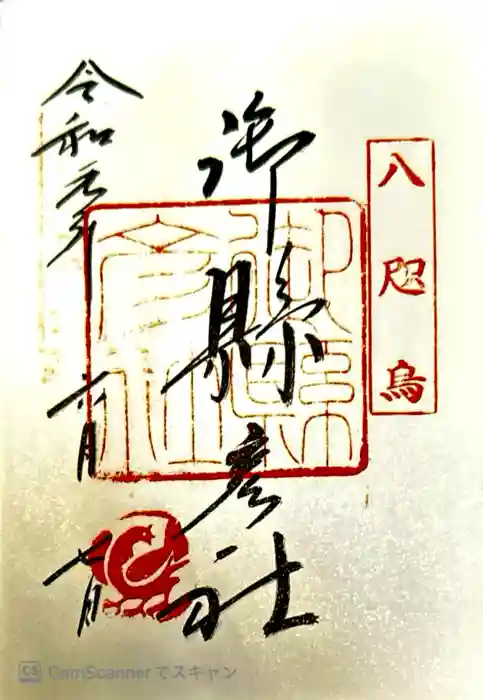 八咫烏
御縣彦社
御縣
彦社
令和元年
六月
七日
CS CamScannerでスキャン